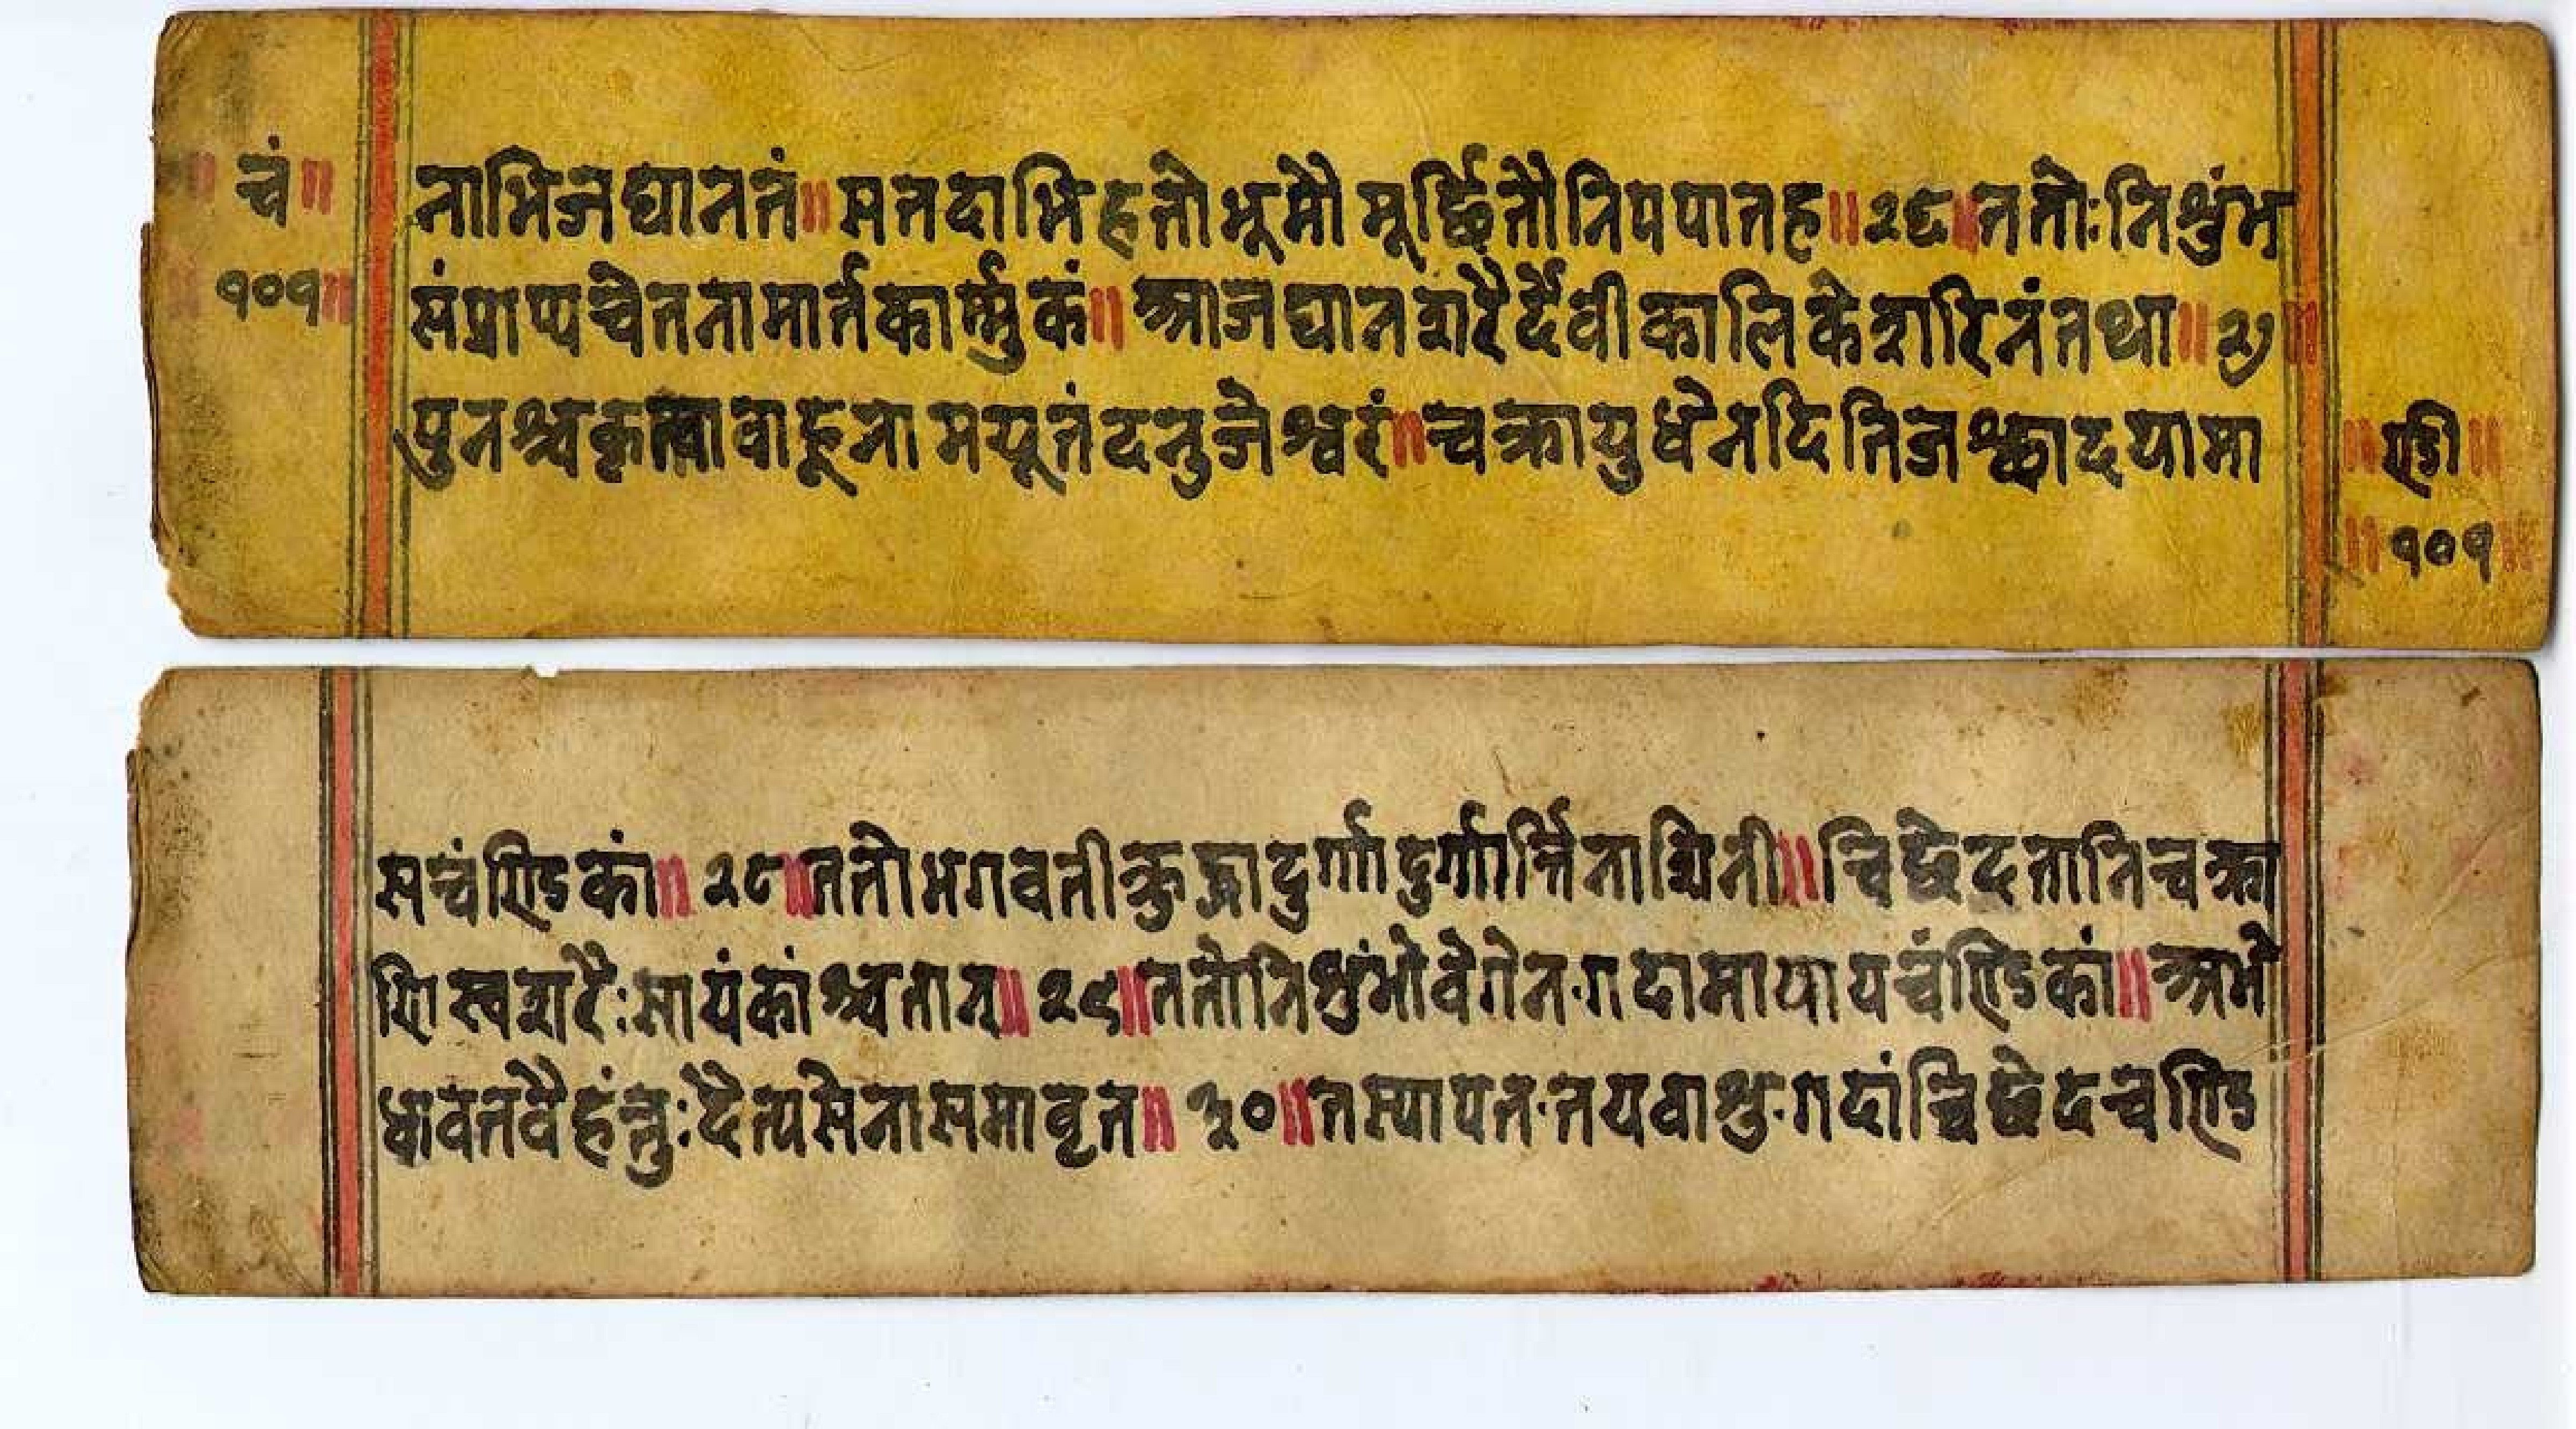 ॥ चं॥
१०१॥
नाभिजघानतं॥सतदाभिहतोभूमौमूर्छितौनिपपातह॥२६॥ततोःनिशुंभ
संप्राप्यचेतनामार्तकार्म्मुकं॥आजघानशरैर्देवीकालिकेशरिनंतथा॥२७॥
पुनश्चकृत्वावाहूनामयूतंदनुजेश्वरं॥चक्रायुधेनदितिजश्छादयामा
॥ण्डी॥
॥१०१॥
सचंण्डिकां॥२८॥ततोभगवतीक्रुद्धादुर्गादुर्गार्त्तिनाशिनी॥चिछेदतानिचक्रा
णिस्वशरैःसायंकांश्चतान्॥२९॥ततोनिशुंभोवेगेन·गदामायायचंण्डिकां॥अभे
धावतवैहंन्तुःदैत्यसेनासमावृत॥३०॥तस्यापत·तयवाशु·गदांचिछेदचण्डि